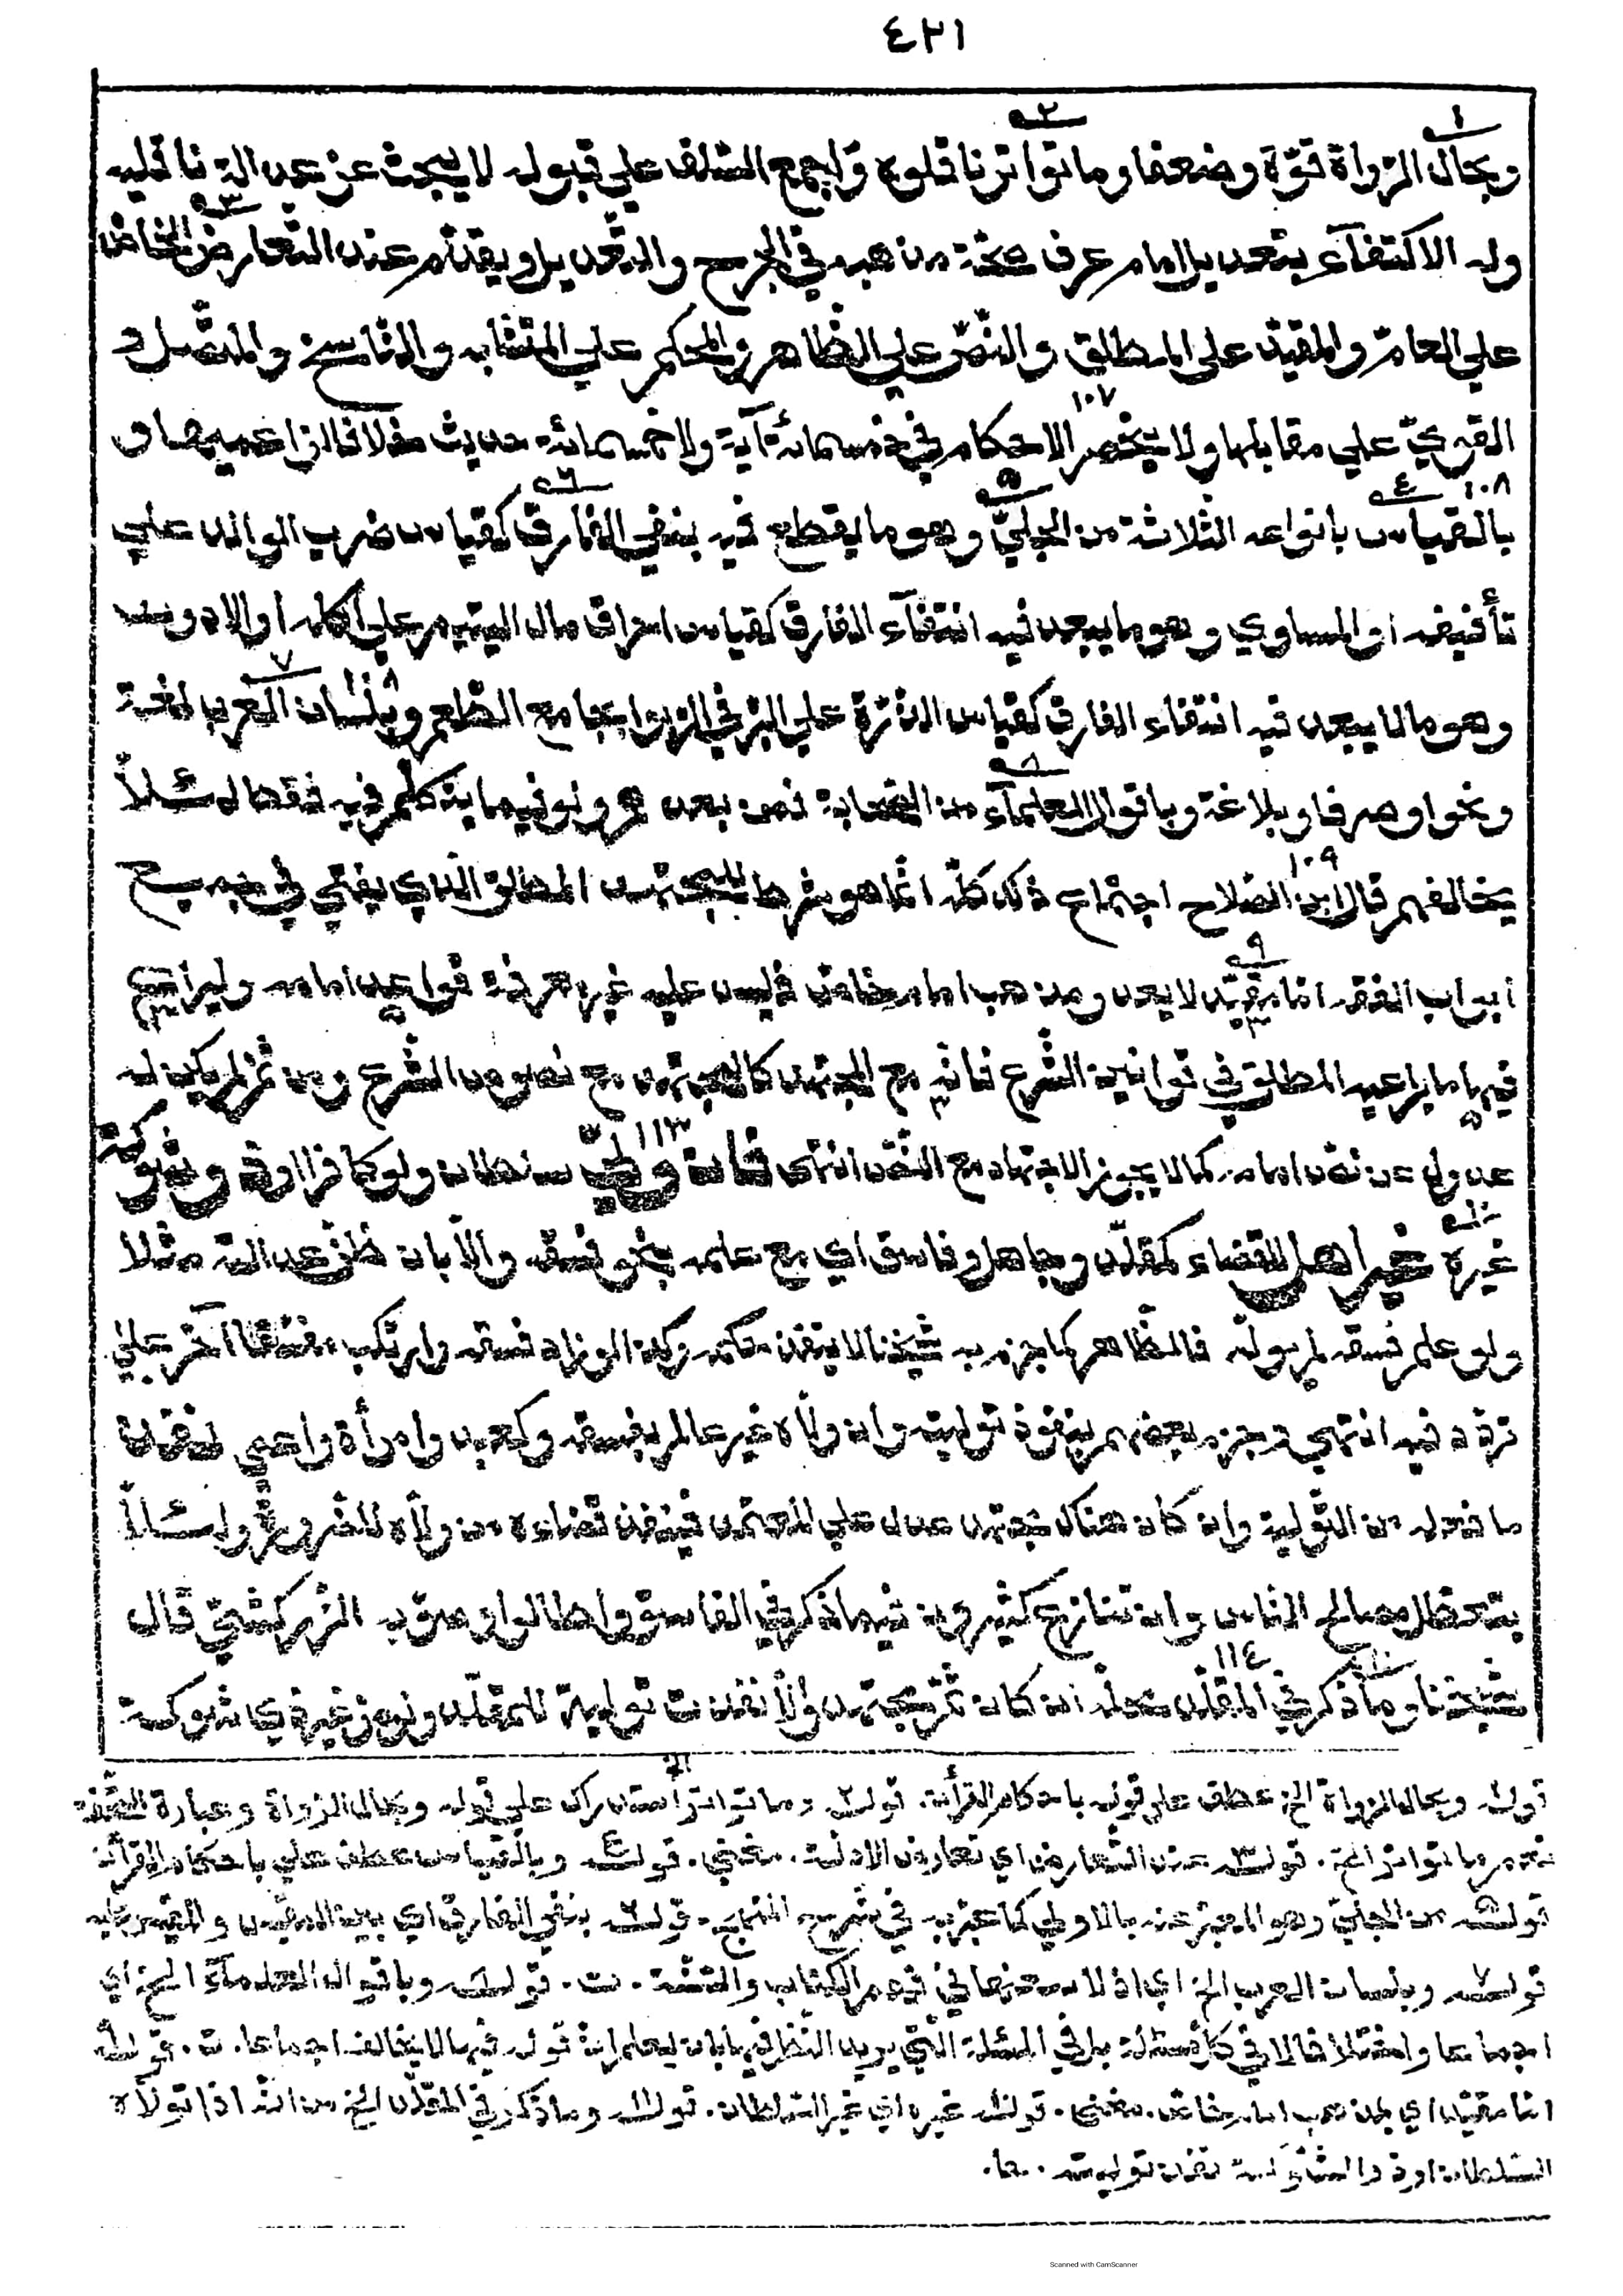 ٤٢١
وبحال الرّواة قوّة وضعفا وما تواتر ناقلوه واجمع السّلف على قبوله لا يبحث عن عدالة ناقليه
وله الاكتفآء بتعديل امام عرف صحّة مذهبه في الجرح والتّعديل ويقدّم عند التّعارض الخاصّ
على العامّ والمقيّد على المطلق والنّصّ على الظّاهر والمحكم على المتشابه والنّاسخ والمتّصل و
القويّ على مقابلها ولا تنحصر الاحكام في خمسمائة آية ولا خمسمائة حديث خلافا لزاعميهما و
بالقياس بانواعه الثّلاثة من الجليّ وهو ما يقطع فيه بنفي الفارق كقياس ضرب الوالد على
تأفيفه او المساوي وهو ما يبعد فيه انتفآء الفارق كقياس احراق مال اليتيم على اكله او الادون
وهو ما لا يبعد فيه انتفاء الفارق كقياس الذّرة على البرّ في الرّبوا بجامع الطّعم وبلسان العرب لغة
ونحوا وصرفا وبلاغة وباقوال العلمآء من الصّحابة فمن بعدهم ولو فيما يتكلّم فيه فقط لئلّا
يخالفهم قال ابن الصّلاح اجتماع ذلك كلّه انّما هو شرط للمجتهد المطلق الّذي يفتي في جميع
ابواب الفقه امّا مقيّد لا يعدو مذهب امام خاصّ فليس عليه غير معرفة قواعد امامه وليراع
فيها ما يراعيه المطلق في قوانين الشّرع فانّه مع المجتهد كالمجتهد مع نصوص الشّرع ومن ثمّ لم يكن له
عدول عن نصّ امامه كما لا يجوز الاجتهاد مع النّصّ انتهى فان ولّي سلطان ولو كافرا او ذو شوكة
غيره غير اهل للقضاء كمقلّد وجاهل وفاسق اي مع علمه بنحو فسقه والّا بان ظنّ عدالته مثلا
ولو علم فسقه لم يولّه فالظّاهر كما جزم به شيخنا لا ينفذ حكمه وكذا لو زاد فسقه وارتكب مفسّقا آخر على
تردّد فيه انتهى وجزم بعضهم بنفوذ توليته وان ولّاه غير عالم بفسقه وكعبد وامرأة واعمى نفذ
ما فعله من التّولية وان كان هناك مجتهد عدل على المعتمد فينفذ قضاءه من ولّاه للضّرورة ولئلّا
يتعطّل مصالح النّاس وان تنازع كثيرون فيما ذكر في الفاسق واطالوا وصوّبه الزّركشيّ قال
شيخنا وما ذكر في المقلّد محلّه ان كان ثمّ مجتهد والّا نفذت تولية المقلّد ولو من غير ذي شوكة
قوله وبحال الرواة الخ عطف على قوله باحكام القرأن. قوله وما تواتر استدراك على قوله وبحال الرواة وعبارة التّحفة
نعم ما تواتر الخ. قوله عند التّعارض اي تعارض الادلّة. مغني. قوله وبالقياس عطف على باحكام القرأن
قوله من الجليّ وهو المعبّر عنه بالاولى كما عبّر به في شرح المنهج. قوله بنفي الفارق اي بين المقيس والمقيس عليه
قوله وبلسان العرب الخ اي اذ لا بدّ منها في فهم الكتاب والسّنّة. ت. قوله وباقوال العلمآء الخ اي
اجماعا واختلافا لا في كلّ مسئلة بل في المسئلة الّتي يريد النّظر فيها بان يعلم انّ قوله فيها لا يخالف اجماعا. ت. قوله
امّا مقيّد اي بمذهب امام خاصّ. مغني. قوله غيره اي غير السّلطان. قوله وما ذكر في المقلّد الخ من انّه اذا تولّاه
السّلطان او ذو الشّوكة نفذ توليته.
Scanned with CamScanner